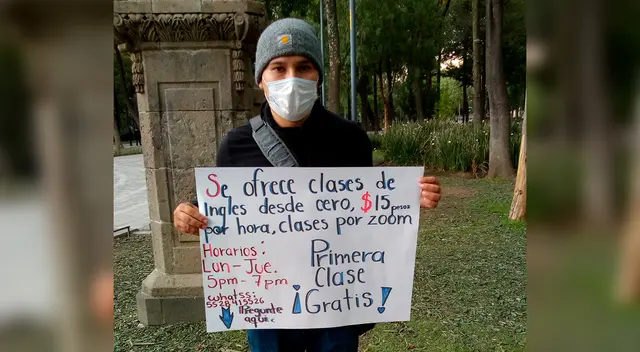 Se ofrece clases de
Ingles desde cero, $15 pesos
por hora, clases por zoom
Horarios:
Lun-Jue.
5pm-7pm
whatss:
5528415526
Pregunte
aquí
Primera
Clase
¡Gratis!